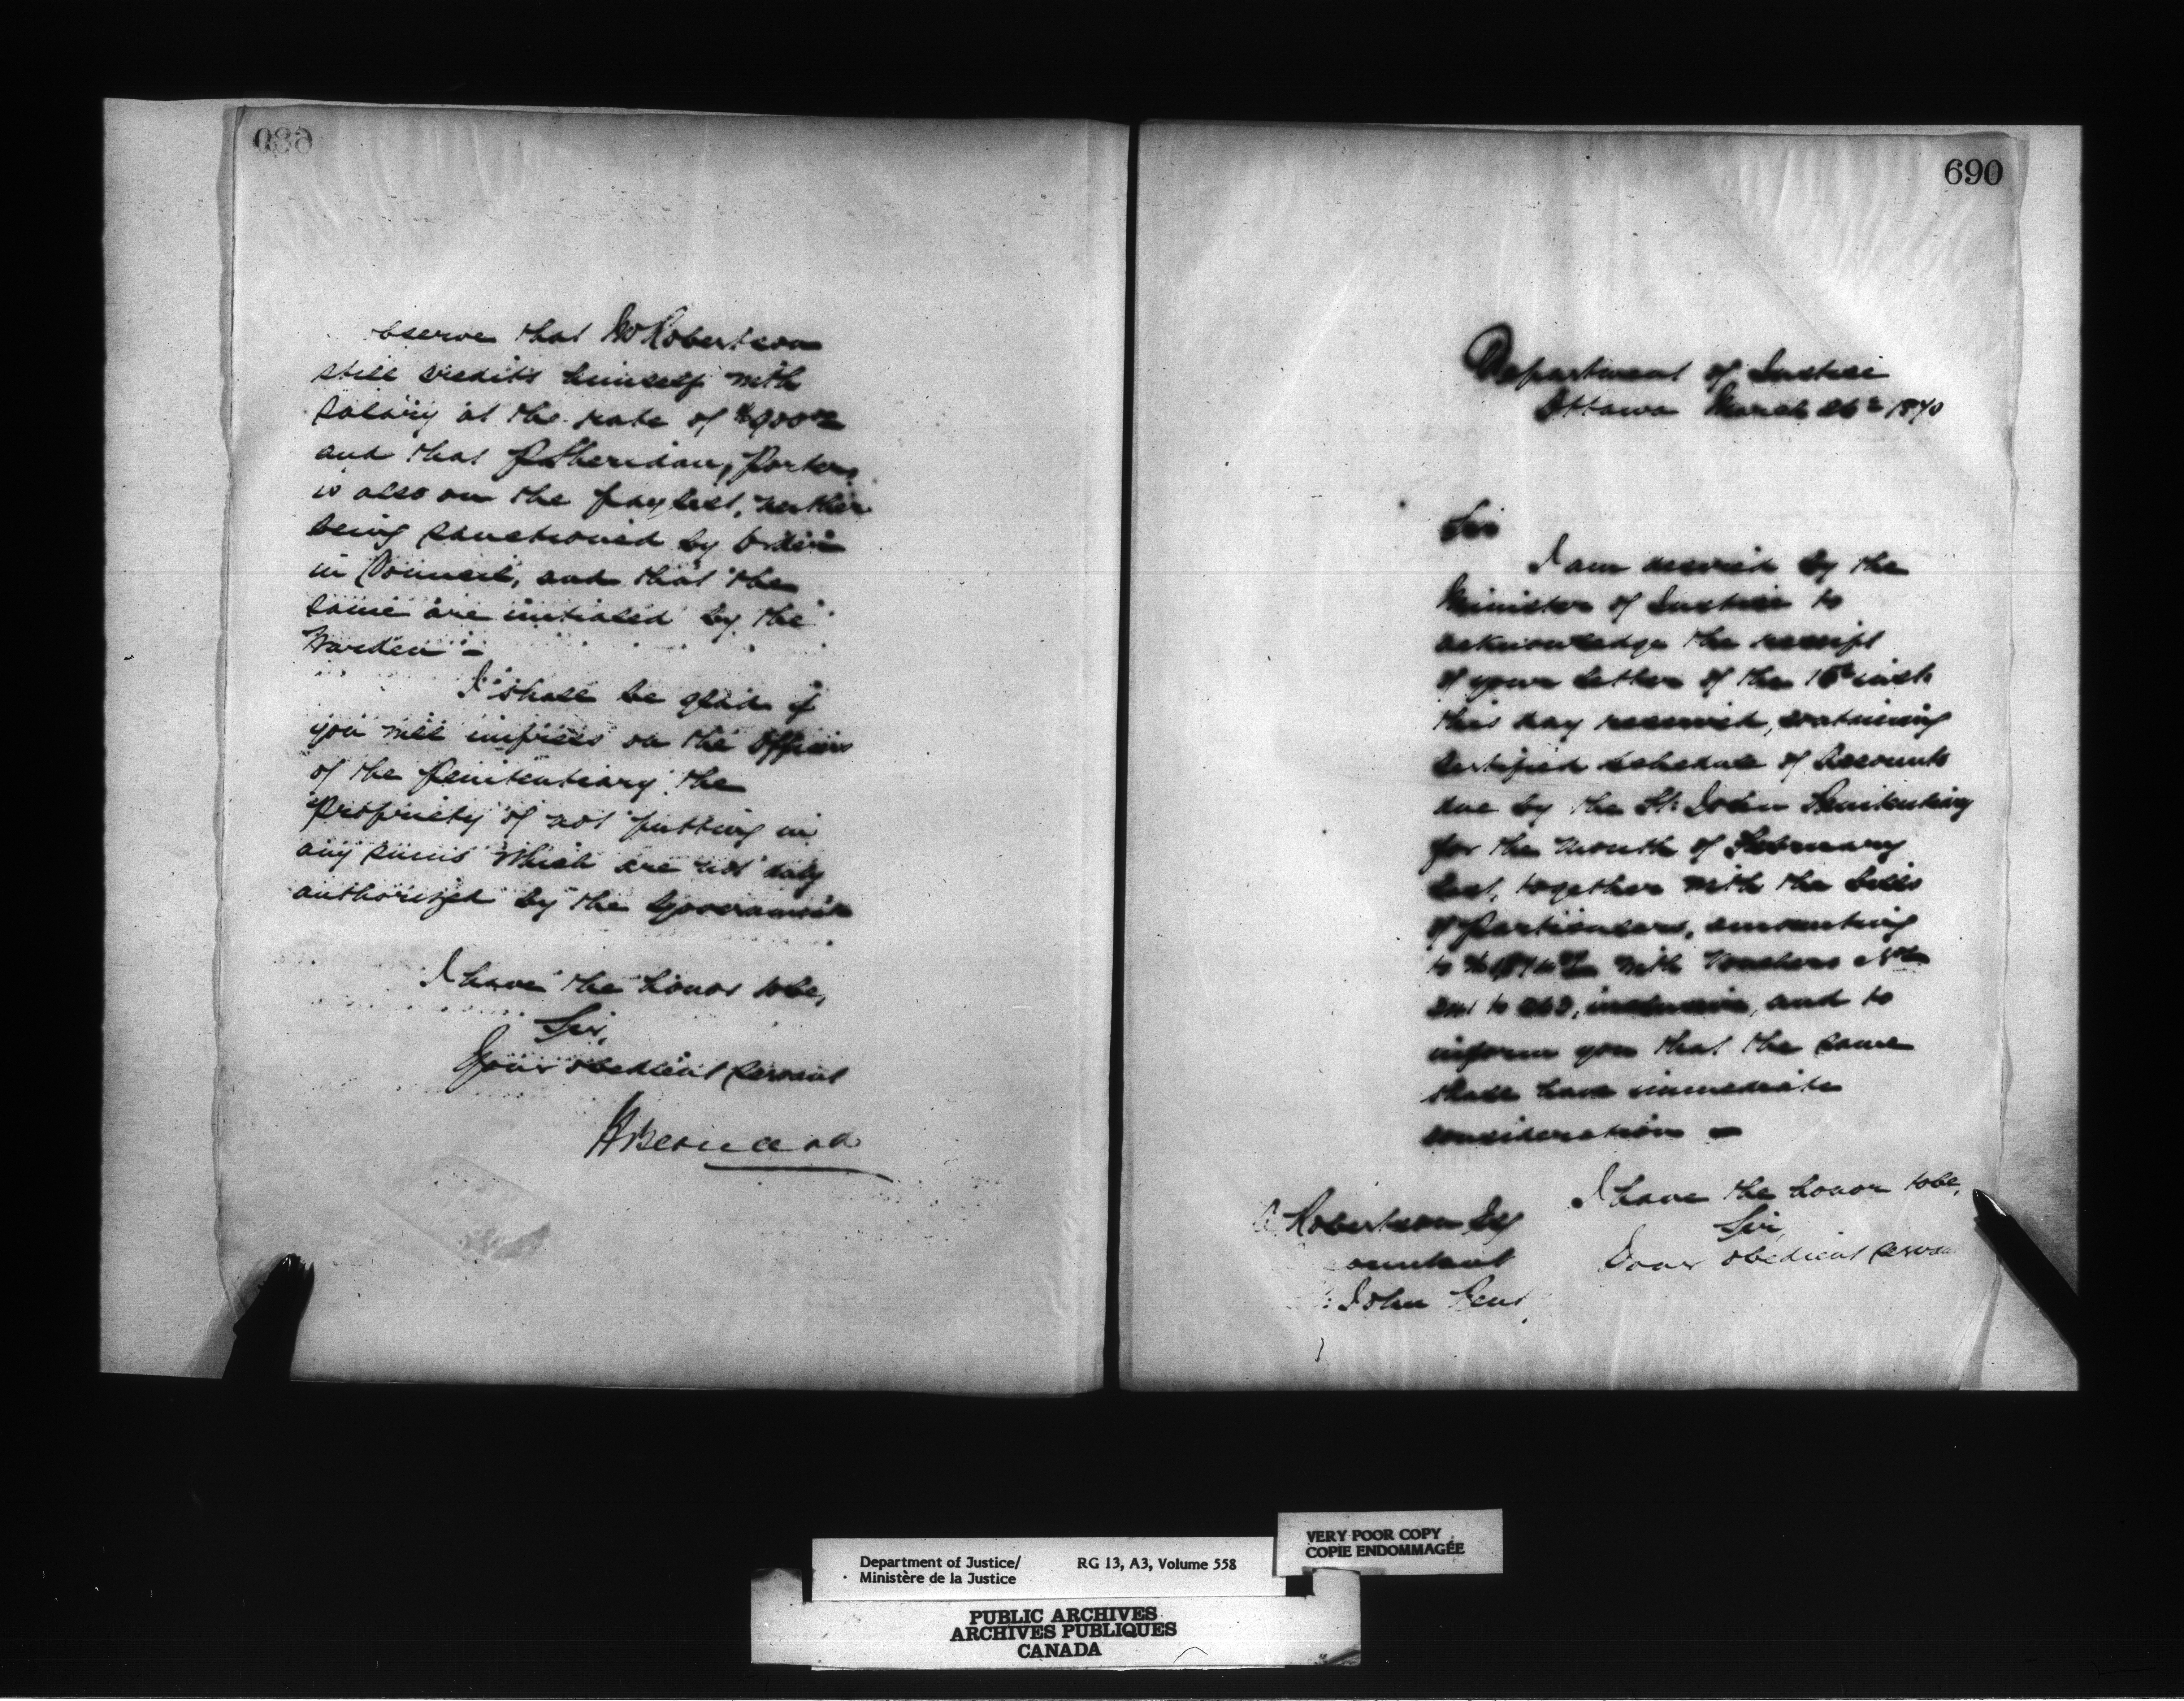 observe that Mr Robertson
still credits himself with
salary at the rate of $900
and that P. Sheridan, Porter,
is also on the pay list, neither
being sanctioned by Order
in Council, and that the
same are initialed by the
Warden -
I shall be glad if
you will impress on the Officers
of the Penitentiary the
propriety of not putting in
any sums which are not duly
authorized by the Government
I have the honor to be,
Sir,
Your obedient servant
H Bernard
690
Department of Justice
Ottawa March 26th 1870
Sir
I am desired by the
Minister of Justice to
acknowledge the receipt
of your letter of the 16th inst
this day received, containing
certified schedule of Accounts
due by the St. John Penitentiary
for the month of February
last, together with the bills
of Particulars, amounting
to with Vouchers Nos
to inclusive, and to
inform you that the same
shall have immediate
consideration -
I have the honor to be,
Sir,
Your obedient serva
Robertson Esq
ountant
John Pent
Department of Justice/
Ministère de la Justice
RG 13, A3, Volume 558
VERY POOR COPY
COPIE ENDOMMAGÉE
PUBLIC ARCHIVES
ARCHIVES PUBLIQUES
CANADA